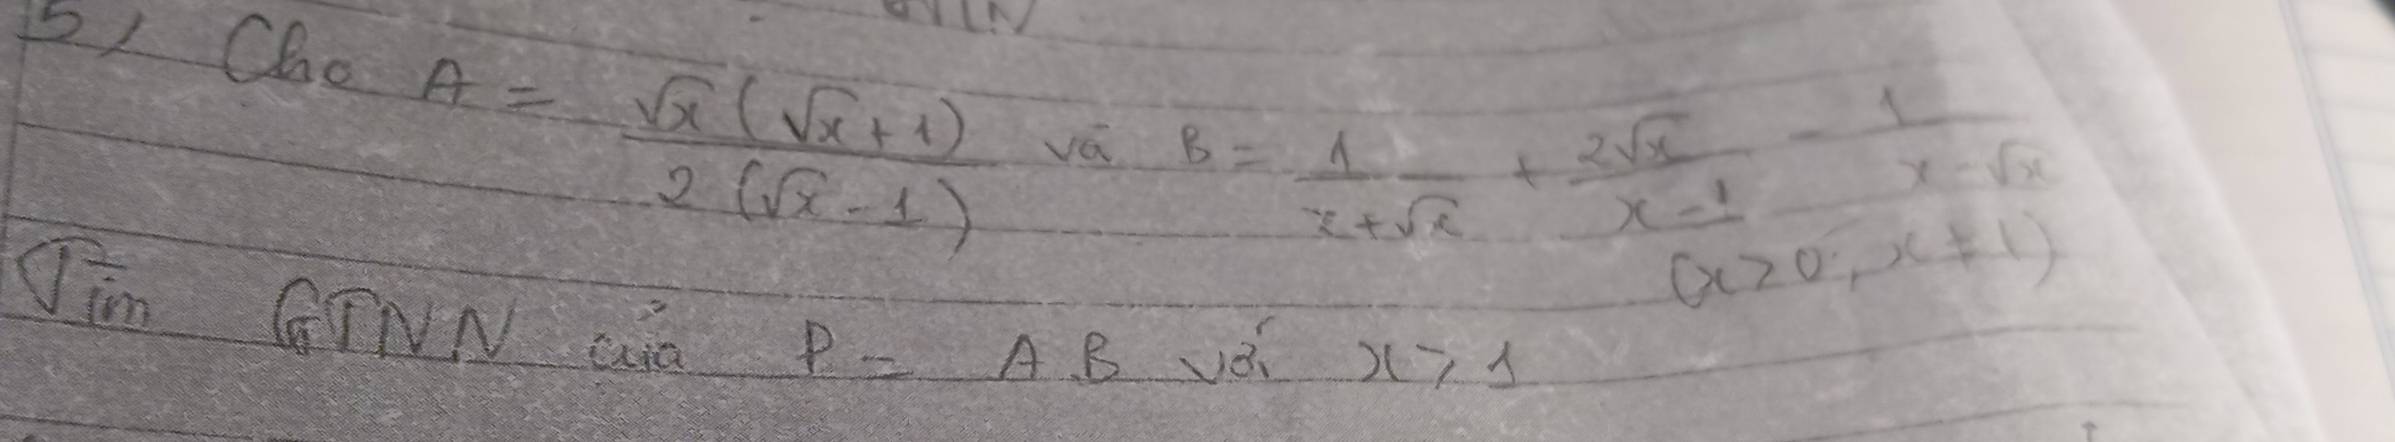 5, Cho A = √x(√x+1) / 2(√x-1) và B = 1/(x+√x) + 2√x/(x-1) - 1/(x-√x)
(x>0; x≠1)
Tìm GTNN của P = A.B với x>1